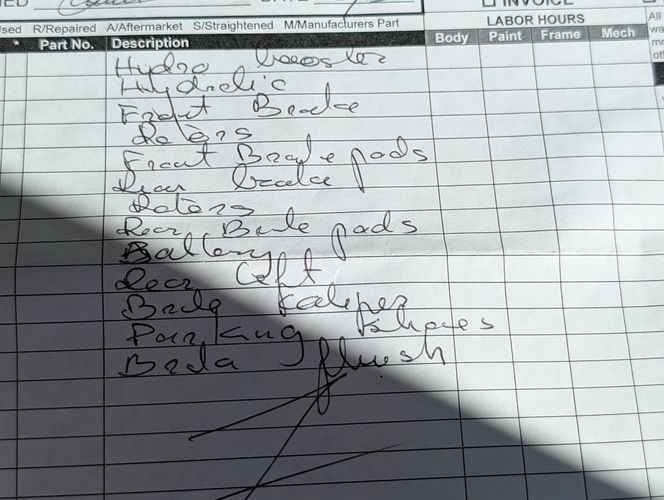 INVOICE
Used R/Repaired A/Aftermarket S/Straightened M/Manufacturers Part
LABOR HOURS
* Part No. Description Body Paint Frame Mech
Hydro booster
Hydrolic
Front Brake
Roters
Front Brake pods
Rear brake
Roters
Rear Brake pads
Battery
Rear Left
Brake Kaleper
Parking Shoes
Brake flush